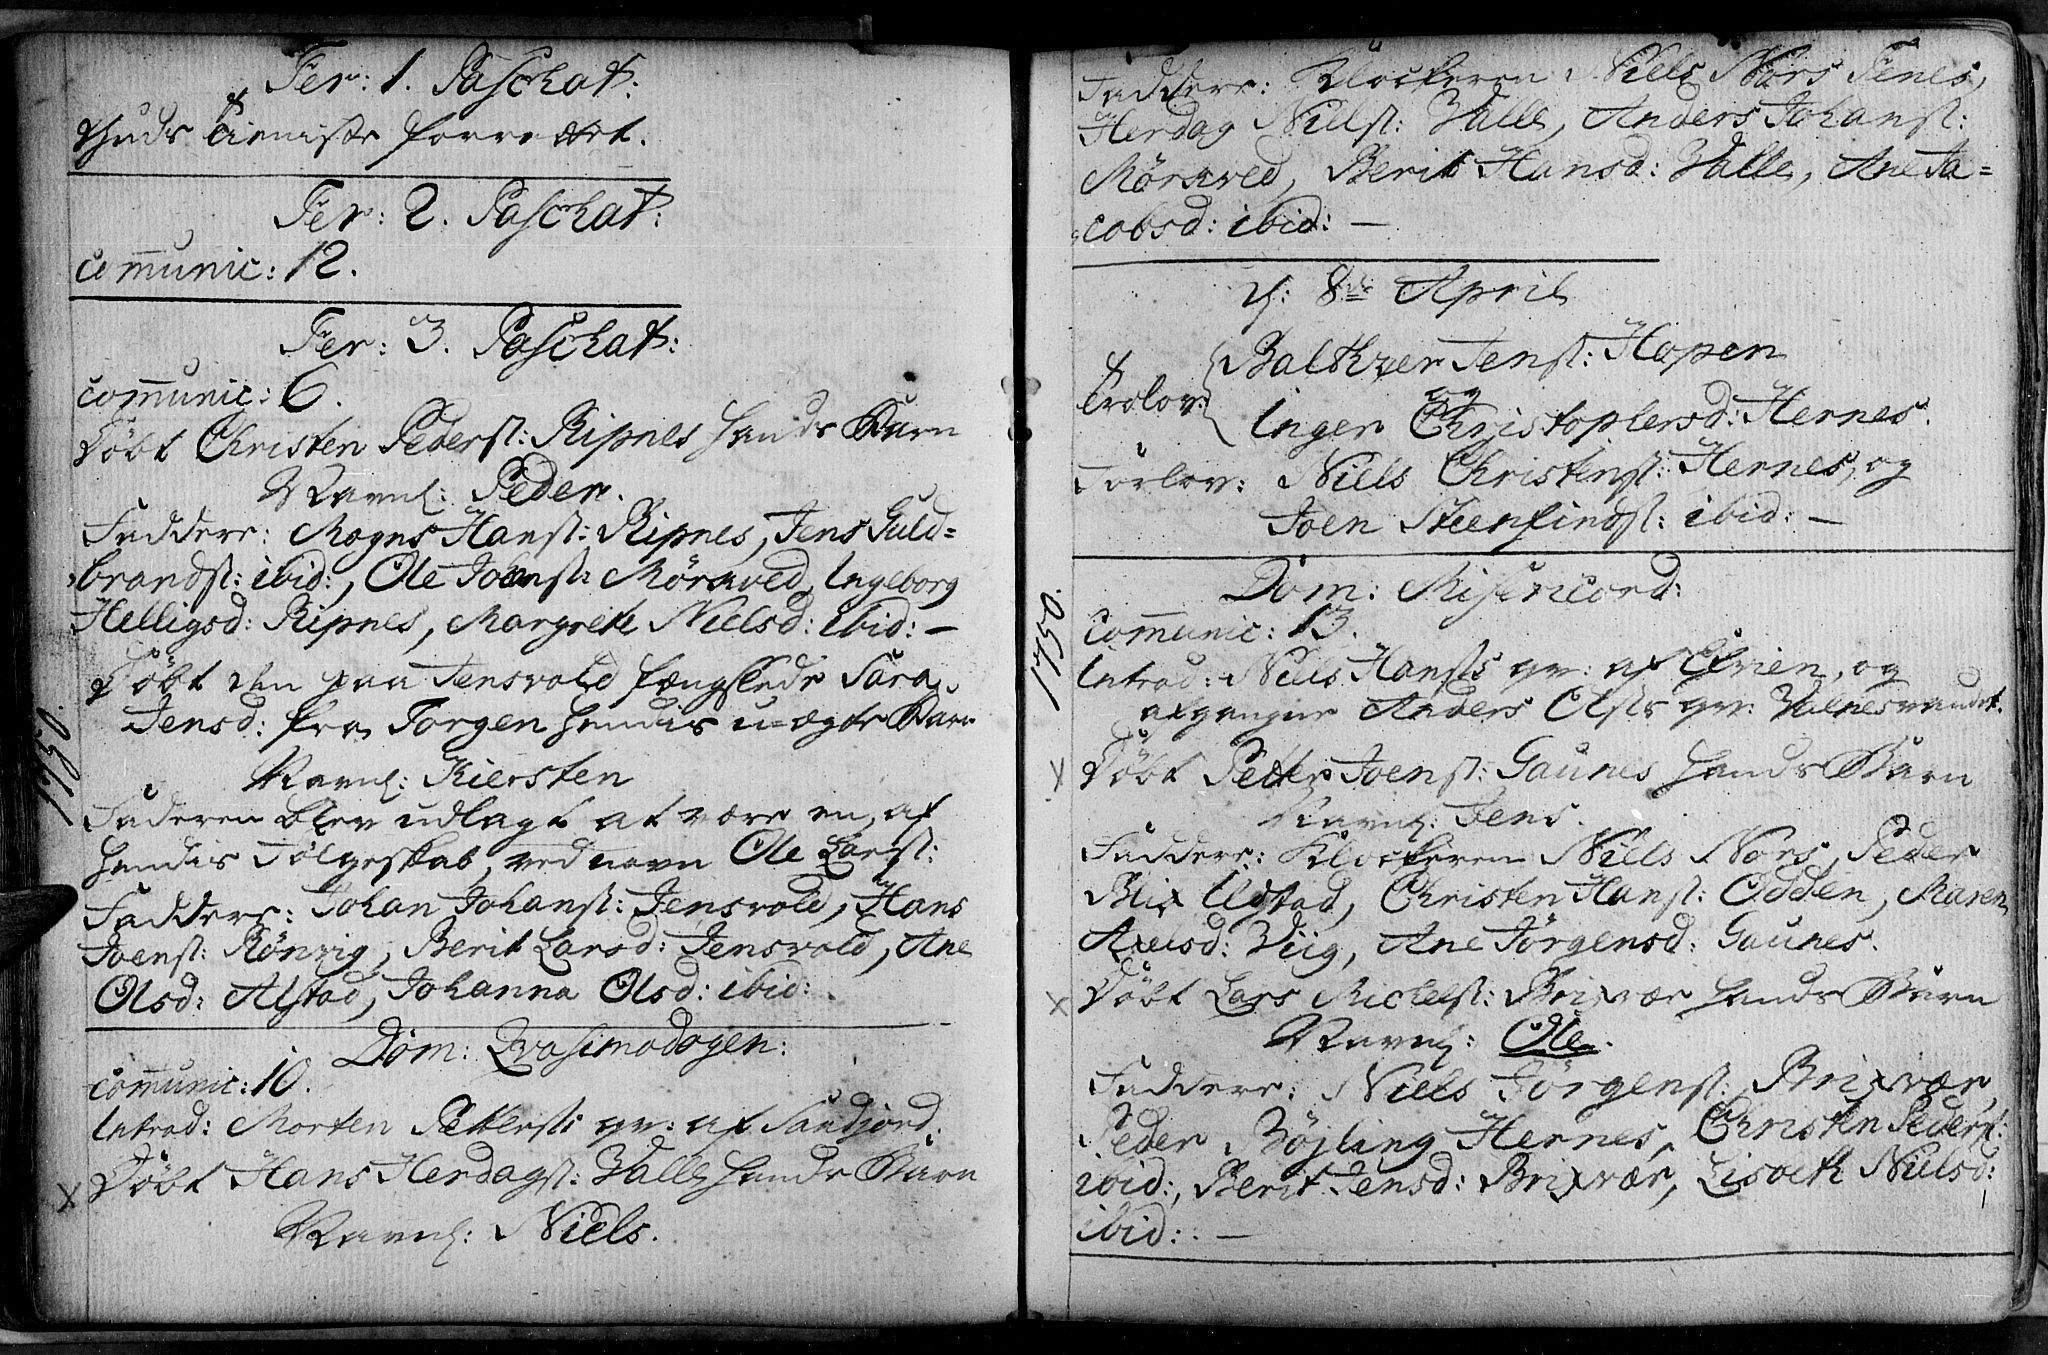 Fer: 1. Paschat:
Guds tieniste forrettet.
Fer: 2. Paschat:
communic: 12.
Fer: 3. Paschat:
communic: 6.
Döbt Christen Pederst: Ripnes hands Barn
Navnl: Peder.
Faddere: Mogns Hanst: Ripnes, Jens Guld=
brandst: ibid:, Ole Joenst: Mörkved, Ingeborg
Helligsd: Ripnes, Margrete Nielsd: ibid: —
Döbt den paa Jensvold fængslede Sara
Jensd: fra Torgen hendis u-ægte Barn
Navnl: Kiersten
Faderen blev udlagt at være en, af
hendis Følgeskab, ved navn Ole Larst:
Faddere: Johan Johanst: Jensvold, Hans
Joenst: Rönvig, Berit Larsd: Jensvold, Ane
Olsd: Alstad, Johanna Olsd: ibid:
1750.
Dom: Qvasimodogen:
communic: 10.
Introd: Morten Petterst: qv: af Sandjord.
X Döbt Hans Herdagst: Valle hands Barn
Navnl: Niels.
Faddere: Klockeren Niels Nors Fenes,
Herdag Nielst: Valle, Anders Johanst:
Mörkved, Berit Hansd: Valle, Ane Ja=
cobsd: ibid: —
d: 8de April
Trolov: Balthzer Jenst: Hopen
og
Inger Christophersd: Hernes.
Forlov: Niels Christenst: Hernes, og
Joen Steenfindst: ibid: —
1750.
Dom: Misericord:
communic: 13.
Introd: Niels Hansts qv: af, og
afgangne Anders Olsts qv: Valnesvandet.
X Döbt Petter Joenst: Gaunes hands Barn
Navnl: Jens.
Faddere: Klockeren Niels Nors, Peder
Blix Ilstad, Christen Hanst: Odden, Maren
Axelsd: Viig, Ane Jörgensd: Gaunes.
X Döbt Lars Michelst: Brixvær hands Barn
Navnl: Ole.
Faddere: Niels Jörgenst: Brixvær,
Peder Böjling Hernes, Christen Pederst:
ibid:, Berit Jensd: Brixvær, Lisbeth Nielsd:
ibid: —